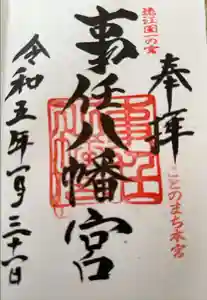 遠江国一の宮
奉拝
ことのまち本宮
事任八幡宮
令和五年一月三十一日